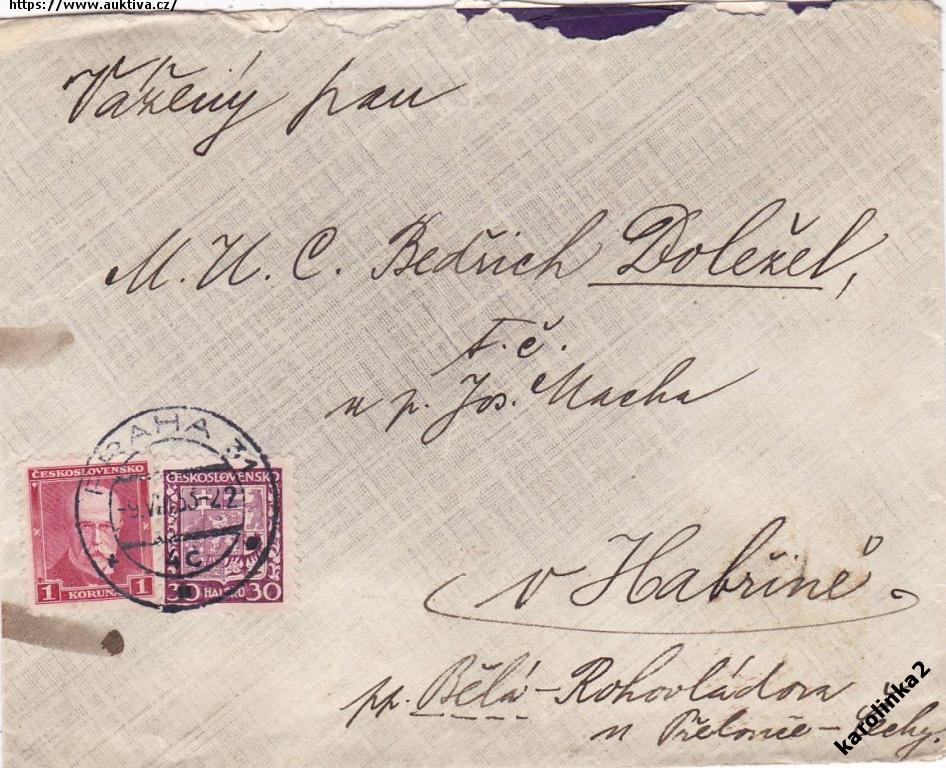 https://www.auktiva.cz/
Vážený pan
M. U. C. Bedřich Doležel,
t. č.
u p. Jos. Macha
PRAHA 31
-9.VII.33-22
4c
ČESKOSLOVENSKO
1 KORUNA 1
ČESKOSLOVENSKO
30 HALÉŘŮ 30
v Habřině
pp. Bělá-Rohovládova
u Přelouče-Čechy.
karolinka2